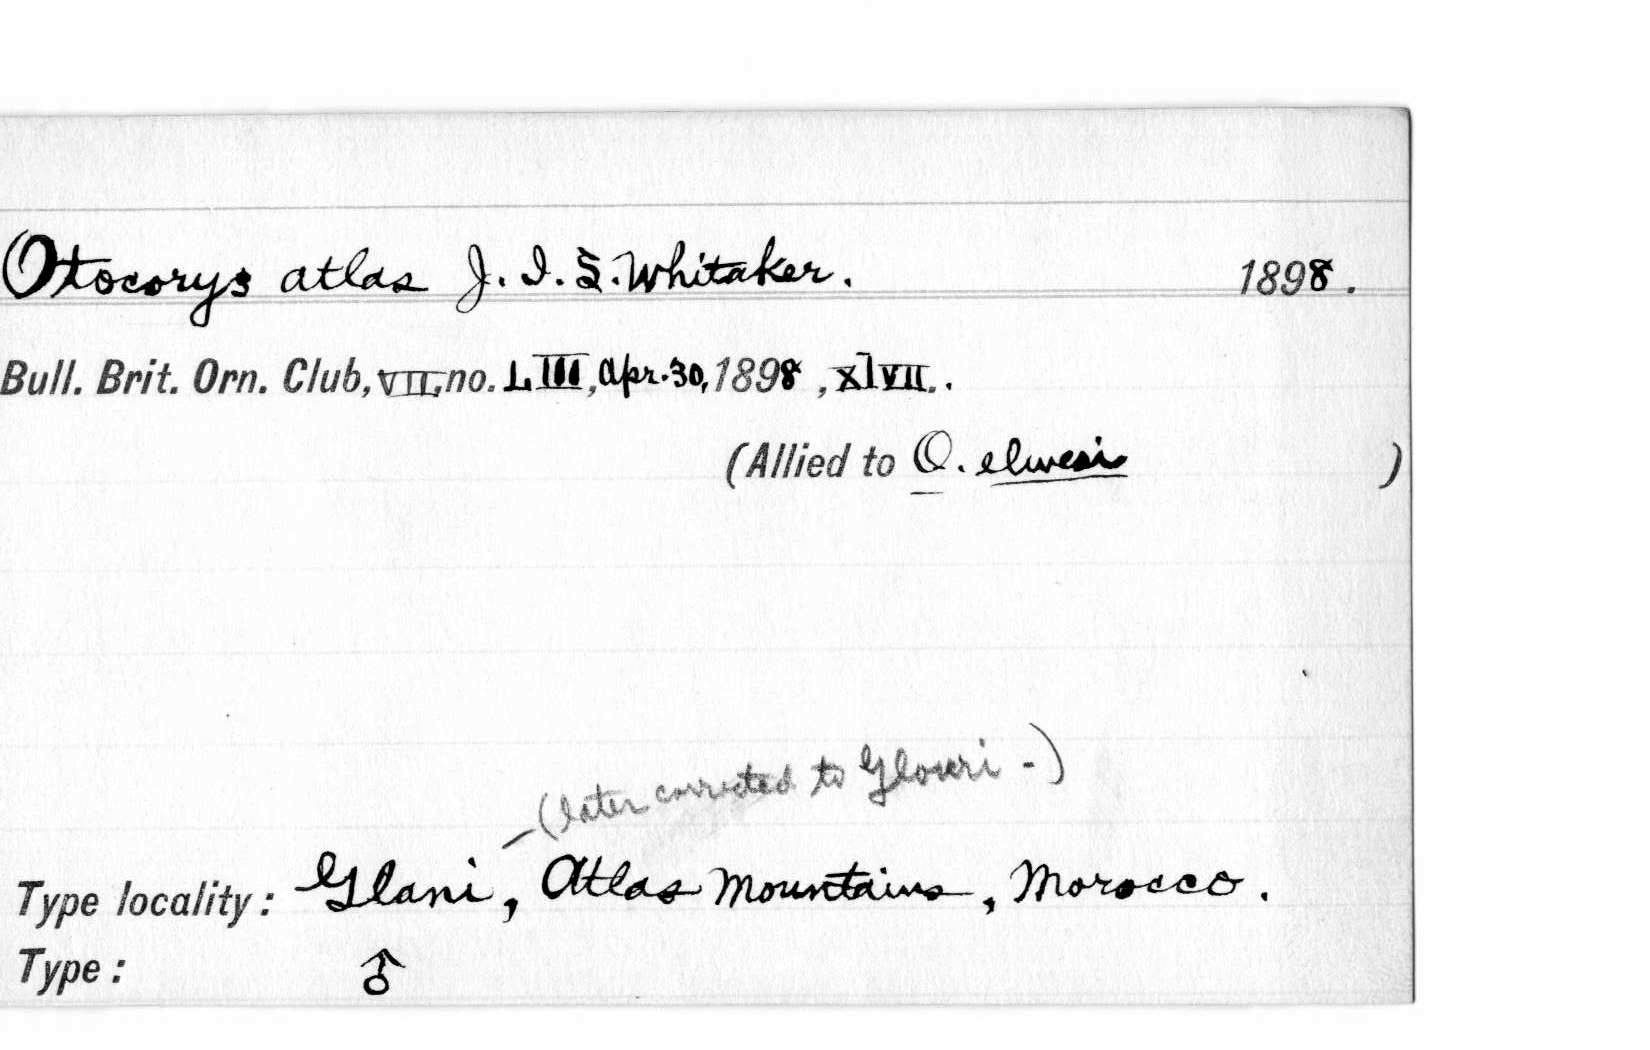 Otocorys atlas J. I. S. Whitaker. 1898.
Bull. Brit. Orn. Club, VII, no. LIII, Apr. 30, 1898, xlvii.
(Allied to O. elwesi )
(later corrected to Glouri -)
Type locality: Glani, Atlas Mountains, Morocco.
Type: ♂